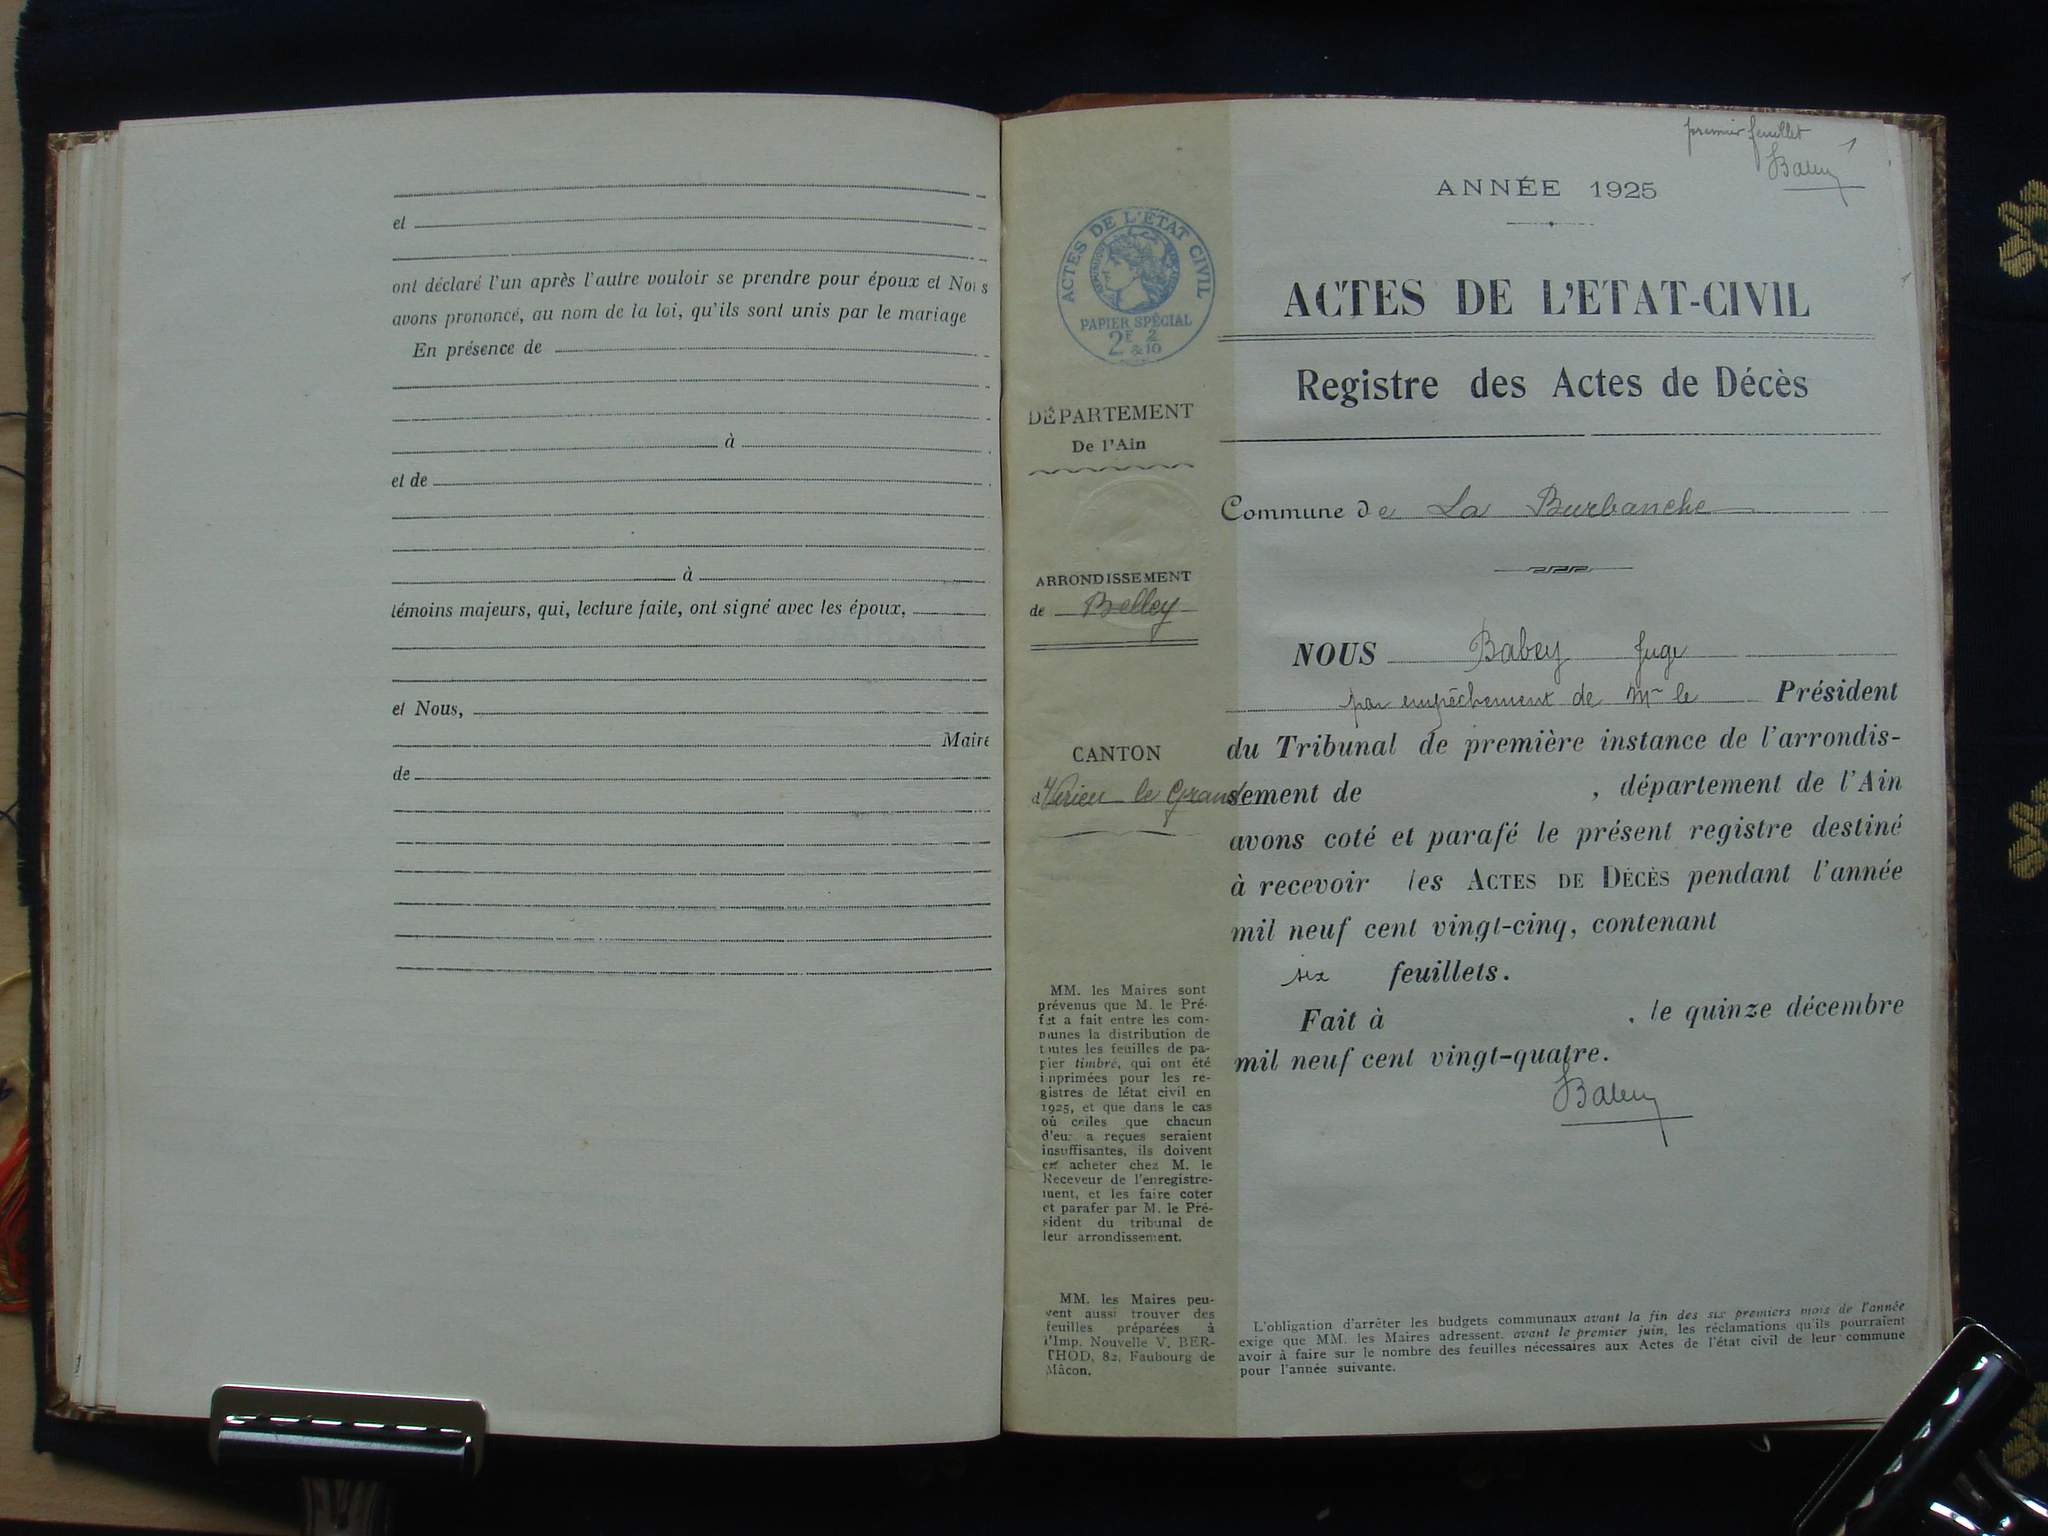 et
ont déclaré l'un après l'autre vouloir se prendre pour époux et Nous
avons prononcé, au nom de la loi, qu'ils sont unis par le mariage
En présence de
à
et de
à
témoins majeurs, qui, lecture faite, ont signé avec les époux,
et Nous,
Maire
de
premier feuillet
1
Babey
ANNÉE 1925
ACTES DE L'ÉTAT CIVIL
PAPIER SPÉCIAL
2F 2
& 10
ACTES DE L'ETAT-CIVIL
Registre des Actes de Décès
DÉPARTEMENT
De l'Ain
Commune de La Burbanche
ARRONDISSEMENT
de Belley
CANTON
d'Virieu le Grand
NOUS Babey Juge
par empêchement de Mr le Président
du Tribunal de première instance de l'arrondis-
sement de , département de l'Ain
avons coté et parafé le présent registre destiné
à recevoir les ACTES DE DÉCÈS pendant l'année
mil neuf cent vingt-cinq, contenant
six feuillets.
Fait à , le quinze décembre
mil neuf cent vingt-quatre.
Babey
MM. les Maires sont
prévenus que M. le Pré-
fet a fait entre les com-
munes la distribution de
toutes les feuilles de pa-
pier timbré, qui ont été
imprimées pour les re-
gistres de létat civil en
1925, et que dans le cas
où celles que chacun
d'eux a reçues seraient
insuffisantes, ils doivent
en acheter chez M. le
Receveur de l'enregistre-
ment, et les faire coter
et parafer par M. le Pré-
sident du tribunal de
leur arrondissement.
MM. les Maires peu-
vent aussi trouver des
feuilles préparées à
l'Imp. Nouvelle V. BER-
THOD, 82, Faubourg de
Mâcon.
L'obligation d'arrêter les budgets communaux avant la fin des six premiers mois de l'année
exige que MM. les Maires adressent, avant le premier juin, les réclamations qu'ils pourraient
avoir à faire sur le nombre des feuilles nécessaires aux Actes de l'état civil de leur commune
pour l'année suivante.